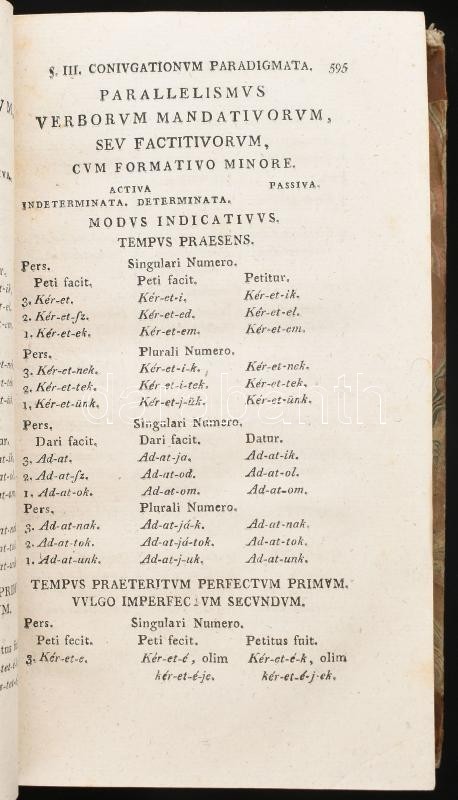 §. III. CONIVGATIONVM PARADIGMATA. 595
PARALLELISMVS
VERBORVM MANDATIVORVM,
SEV FACTITIVORVM,
CVM FORMATIVO MINORE.
ACTIVA PASSIVA.
INDETERMINATA. DETERMINATA.
MODVS INDICATIVVS.
TEMPVS PRAESENS.
Pers. Singulari Numero.
Peti facit. Peti facit. Petitur.
3. Kér-et. Kér-et-i. Kér-et-ik.
2. Kér-et-ſz. Kér-et-ed. Kér-et-el.
1. Kér-et-ek. Kér-et-em. Kér-et-em.
Pers. Plurali Numero.
3. Kér-et-nek. Kér-et-i-k. Kér-et-nek.
2. Kér-et-tek. Kér-et-i-tek. Kér-et-tek.
1. Kér-et-ünk. Kér-et-j-ük. Kér-et-ünk.
Pers. Singulari Numero.
Dari facit. Dari facit. Datur.
3. Ad-at. Ad-at-ja. Ad-at-ik.
2. Ad-at-ſz. Ad-at-od. Ad-at-ol.
1. Ad-at-ok. Ad-at-om. Ad-at-om.
Pers. Plurali Numero.
3. Ad-at-nak. Ad-at-já-k. Ad-at-nak.
2. Ad-at-tok. Ad-at-já-tok. Ad-at-tok.
1. Ad-at-unk. Ad-at-j-uk. Ad-at-unk.
TEMPVS PRAETERITVM PERFECTVM PRIMVM.
VVLGO IMPERFECTVM SECVNDVM.
Pers. Singulari Numero.
Peti fecit. Peti fecit. Petitus fuit.
3. Kér-et-e. Kér-et-é, olim Kér-et-é-k, olim
kér-et-é-je. kér-et-é-j-ek.
darabanth